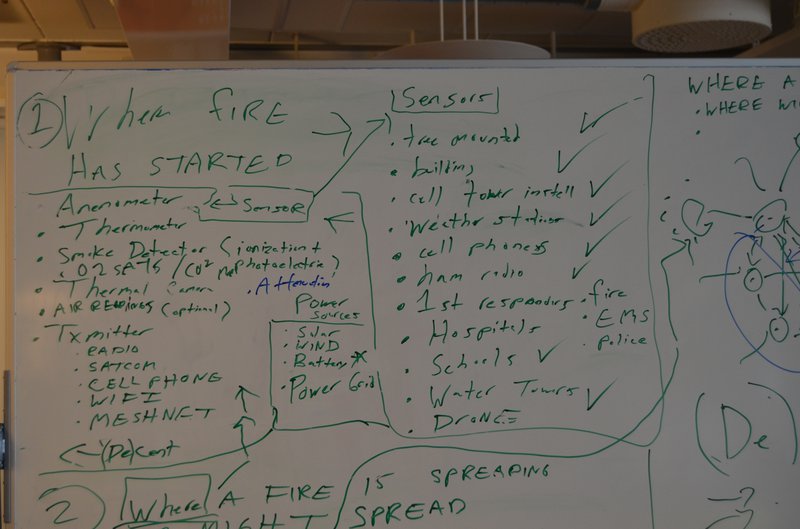 1 When FIRE
HAS STARTED
Anemometer <-> Sensor
• Thermometer
• Smoke Detector (ionization +
photoelectric)
• Thermal Camera
• AIR READINGS (optional)
• Txmitter
• RADIO
• SATCOM
• CELL PHONE
• WIFI
• MESHNET
Power
Sources
• Solar
• WIND
• Battery
• Power Grid
Sensors
• tree mounted
• building
• cell tower install
• Weather stations
• cell phones
• ham radio
• 1st responders • fire
• EMS
• Police
• Hospitals
• Schools
• Water Towers
• DRONES
2 Where A FIRE IS SPREADING
MIGHT SPREAD
WHERE A
• WHERE WI
(De